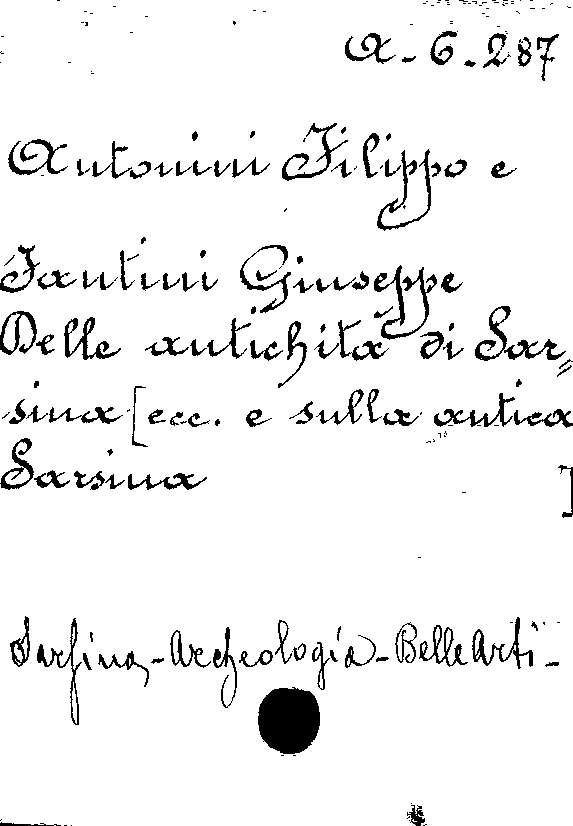 A-6-287
Antonini Filippo e
Fantini Giuseppe
Delle antichità di Sar=
sina [ecc. e sulla antica
Sarsina ]
Sarsina - Archeologia - Belle Arti -